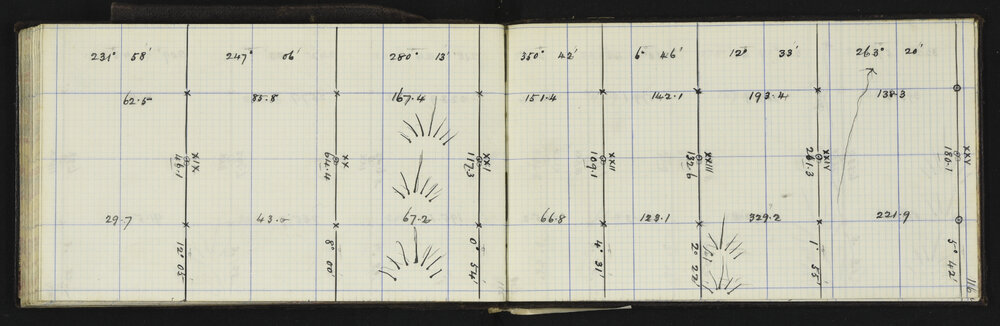 231° 58′ 247° 06′ 280° 13′ 350° 42′ 6° 46′ 12° 33′ 263° 20′
62.5 167.4 151.4 142.1 193.4 138.3
XIX XX XXI XXII XXIII XXIV XXV
46.1 64.4 117.3 109.1 132.6 261.3 180.1
29.7 43.0 67.2 66.8 123.1 329.2 221.9
12° 05′ 8° 00′ 0° 54′ 4° 31′ 2° 22′ 1° 55′ 5° 42′
116